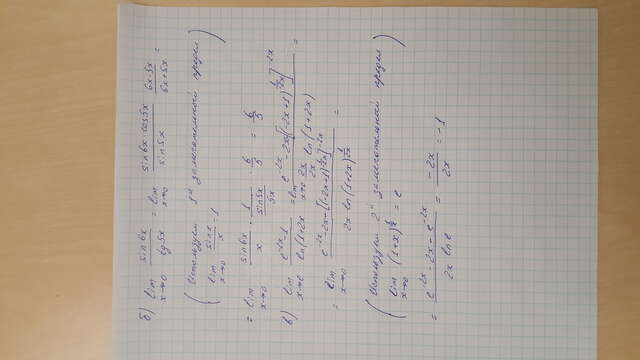 б) lim x→0 sin6x / tg5x = lim x→0 sin6x · cos5x / sin5x · 6x·5x / 6x·5x =
( Используем 1й замечательный предел
lim x→0 sinx / x = 1 )
= lim x→0 sin6x / x · 1 / (sin5x / 5x) · 6/5 = 6/5
в) lim x→0 (e^-2x - 1) / ln(1+2x = lim x→0 (e^-2x - 2x·[(-2x+1)^(1/2x)]^-2x) / (2x/2x ln(1+2x)) =
= lim x→0 (e^-2x - 2x - [(-2x+1)^(1/2x)]^-2x) / (2x ln(1+2x)^(1/2x)) =
( Используем 2й замечательный предел
lim x→0 (1+x)^(1/x) = e )
= (e^-2x - 2x - e^-2x) / (2x ln e) = -2x / 2x = -1